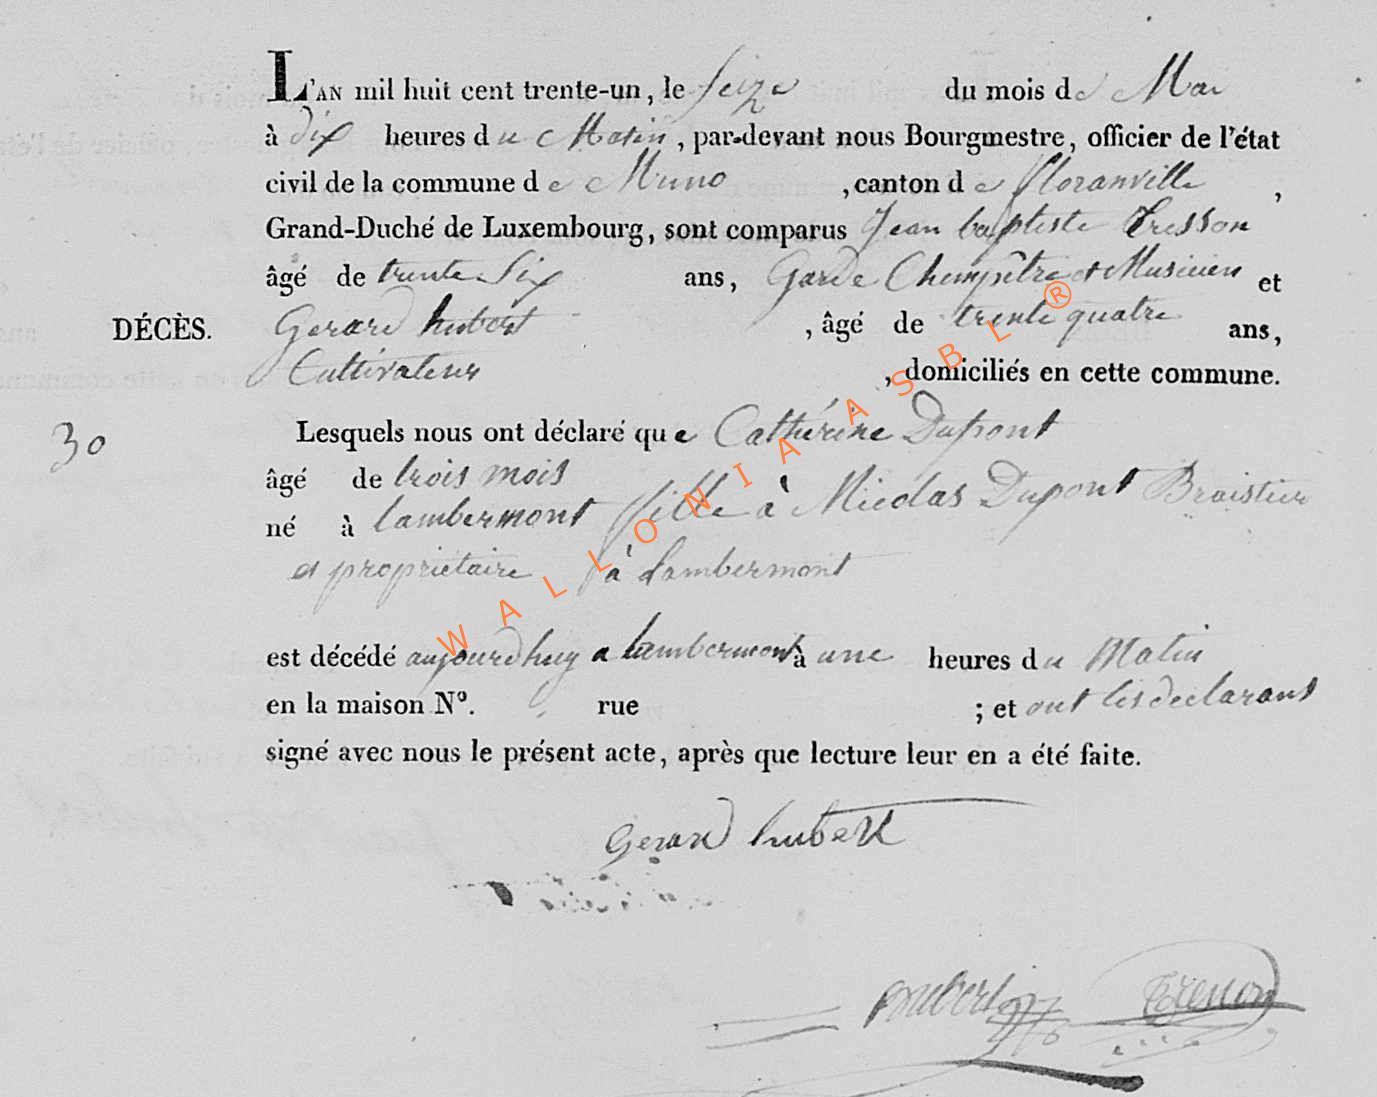 L'AN mil huit cent trente-un, le Seize du mois de Mai
à dix heures du Matin, par-devant nous Bourgmestre, officier de l'état
civil de la commune de Muno, canton de floranville,
Grand-Duché de Luxembourg, sont comparus Jean baptiste Tresson
âgé de trente Six ans, Garde Champêtre et Musicien et
DÉCÈS. Gerard hubert, âgé de trente quatre ans,
Cultivateur, domiciliés en cette commune.
30 Lesquels nous ont déclaré que Cathérine Dupont
âgé de trois mois
né à lambermont fille à Nicolas Dupont
et propriétaire à Lambermont
est décédé aujourdhuy a lambermont à une heures du Matin
en la maison N°. rue ; et ont les declarans
signé avec nous le présent acte, après que lecture leur en a été faite.
Gerard hubert
Tresson
WALLONIA ASBL ®